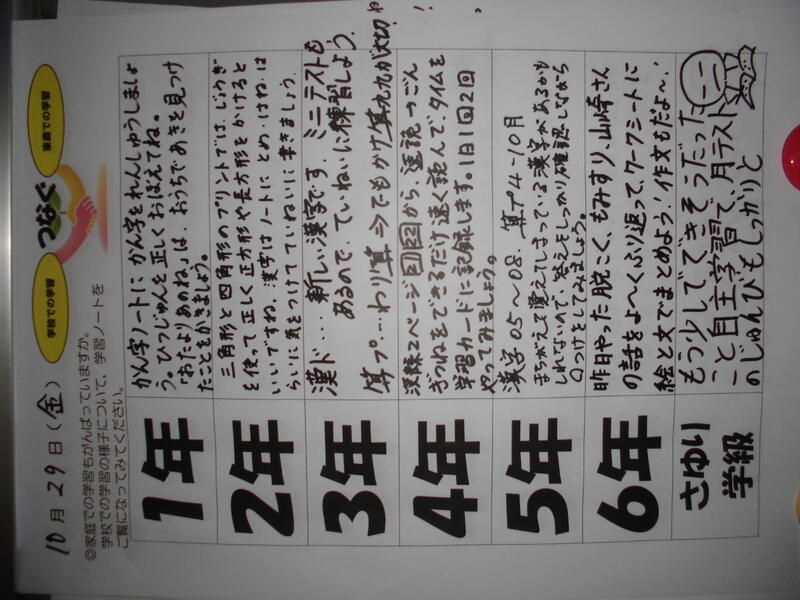 10月29日（金）
学校での学習
つなぐ
家庭での学習
◎家庭での学習もがんばっていますか。
学校での学習の様子について、学習ノートを
ご覧になってみてください。
1年
かん字ノートに かん字をれんしゅうしましょ
う。ひつじゅんを正しくおぼえてね。
「おたよりあのね」は、おうちであきを見つけ
たことをかきましょう。
2年
三角形と四角形のプリントでは、じょうぎ
を使って正しく正方形や長方形をかけると
いいですね。漢字はノートにとめ・はね・は
らいに気をつけてていねいに書きましょう。
3年
漢ド… 新しい漢字です。ミニテストも
あるので、ていねいに練習しよう。
算プ…わり算 今でもかけ算九九が大切
4年
漢練2ページ 国 から、音読 つごん
ぎつねをできるだけ速く読んで、タイムを
学習カードに記録します。1日1回2回
やってみましょう。
5年
漢字05～08、算プ4-10月
まちがえて覚えてしまっている漢字があるかも
しれないので、答えをしっかり確認しながら
〇つけをしてみましょう。
6年
昨日やった脱こく、もみすり、山崎さん
の話をよ～くふり返って、ワークシートに
絵と文でまとめよう！作文もだよ～！
さゆり
学級
もう少しでできそうだった
こと自主学習で、月テスト
のじゅんびもしっかりと